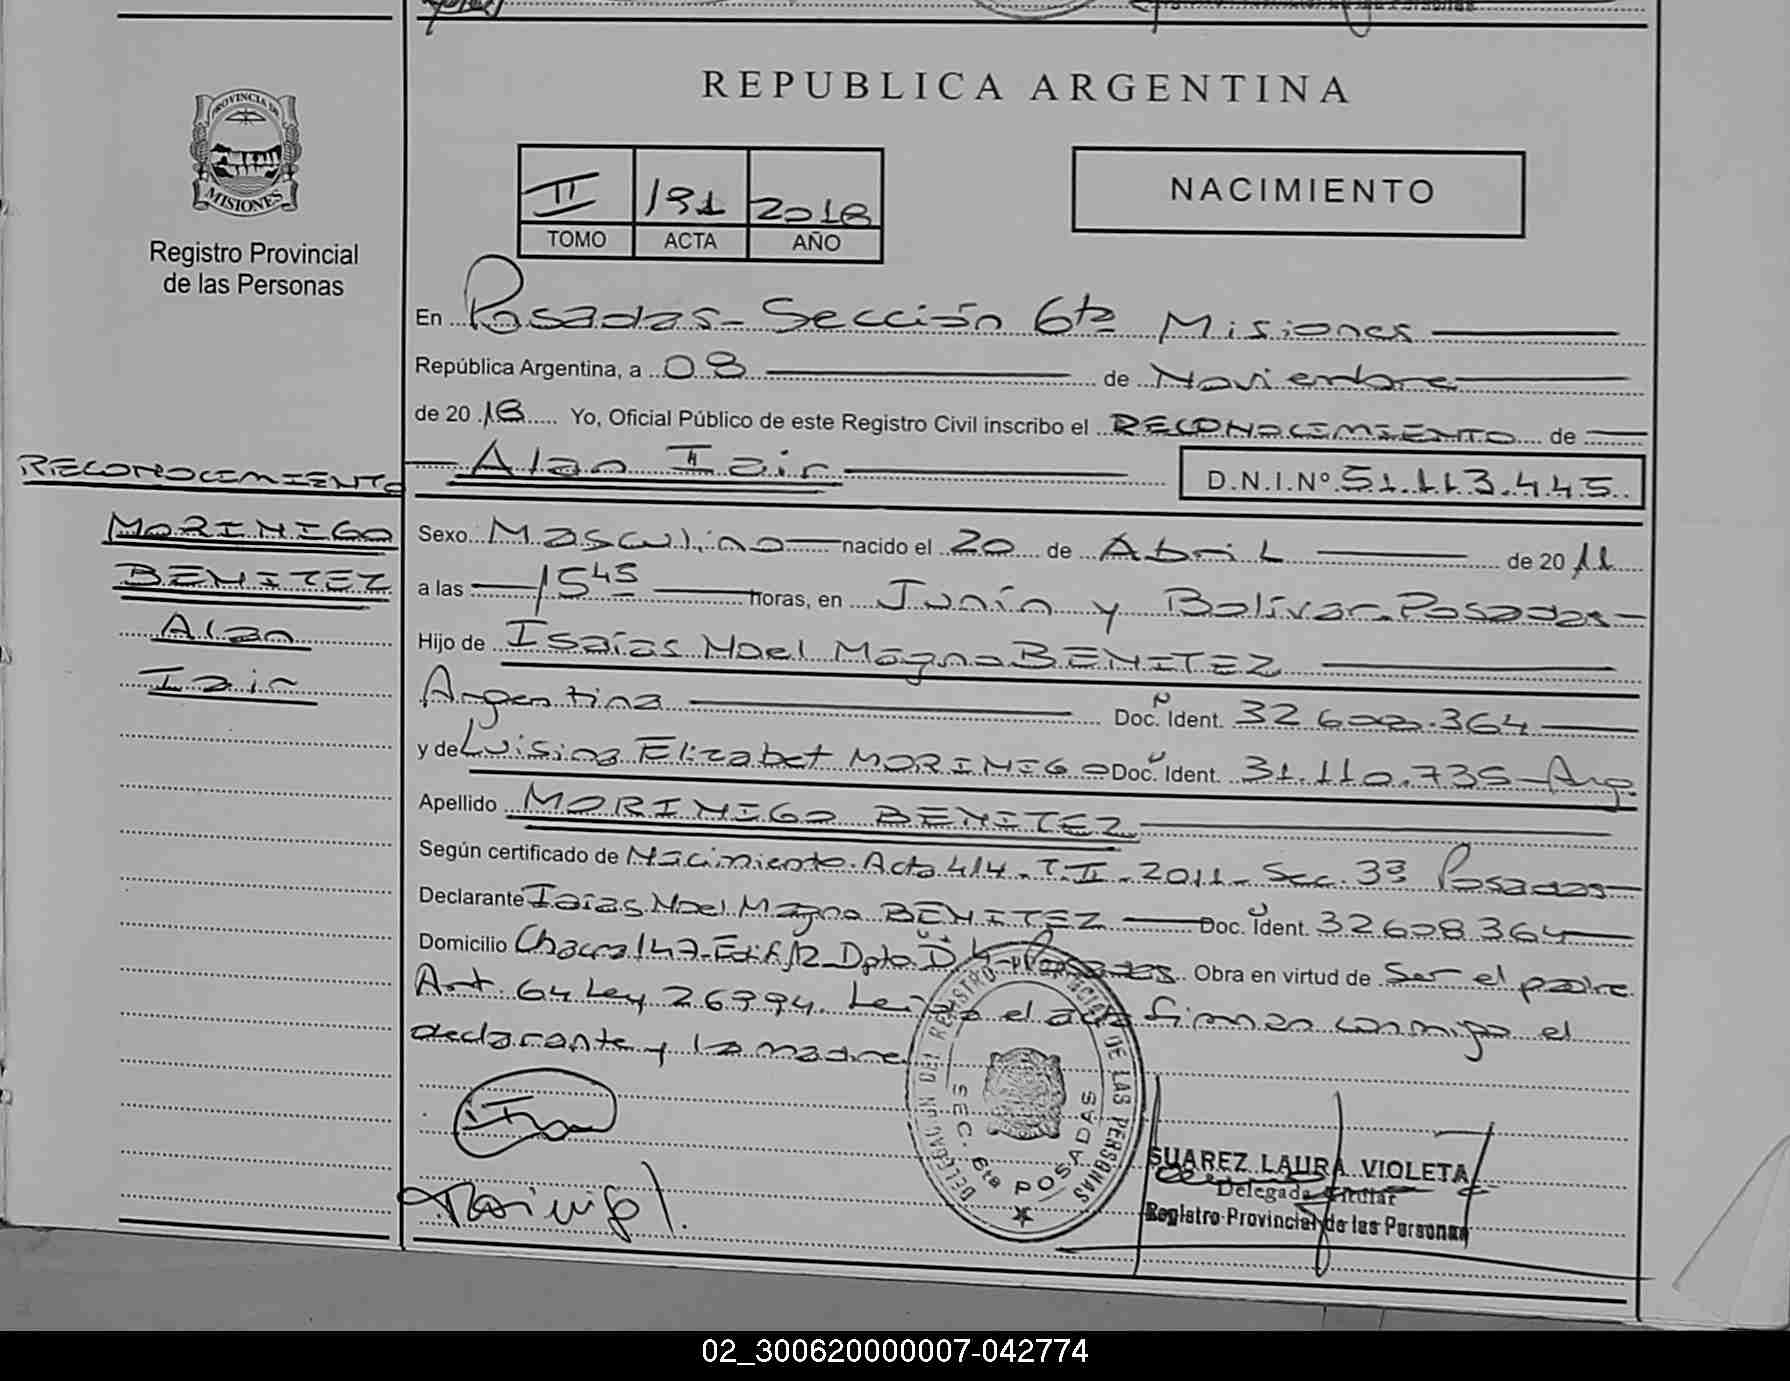 REPUBLICA ARGENTINA
PROVINCIA DE
MISIONES
Registro Provincial
de las Personas
II 191 2018
TOMO ACTA AÑO
NACIMIENTO
En Posadas - Sección 6ta Misiones
República Argentina, a 08 de Noviembre
de 2018 Yo, Oficial Público de este Registro Civil inscribo el RECONOCIMIENTO de
Alan Iair D.N.I.Nº 51.113.445
RECONOCIMIENTO
MORINIGO
BENITEZ
Alan
Iair
Sexo Masculino nacido el 20 de Abril de 2011
a las 15 45 horas, en Junín y Bolívar - Posadas -
Hijo de Isaías Noel Magno BENITEZ
Argentina Doc. Ident. 32.608.364
y de Luisina Elizabet MORINIGO Doc. Ident. 31.110.735 - Arg.
Apellido MORINIGO BENITEZ
Según certificado de Nacimiento. Acta 414 - T. II - 2011 - Sec. 3ª Posadas
Declarante Isaías Noel Magno BENITEZ Doc. Ident. 32.608.364
Domicilio Chacra 147 - Edif. 12 - Dpto. D Posadas. Obra en virtud de Ser el padre
Art. 64 Ley 26994. Leída el acta firman conmigo el
declarante y la madre
DELEGACION DEL REGISTRO PROVINCIAL DE LAS PERSONAS
SEC. 6ta POSADAS
SUAREZ LAURA VIOLETA
Delegada Titular
Registro Provincial de las Personas
02_300620000007-042774